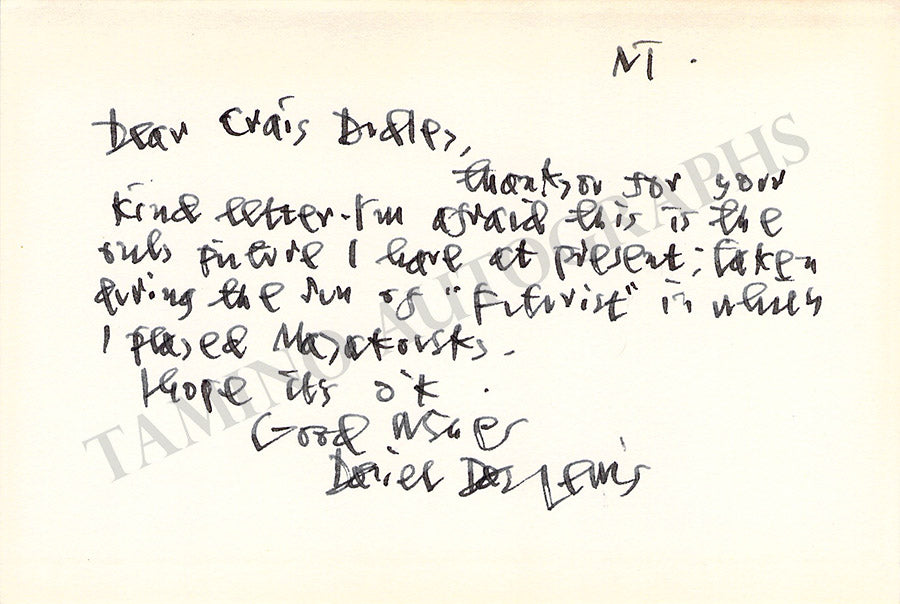 NT.
Dear Craig Dudley,
thankyou for your
kind letter. I'm afraid this is the
only picture I have at present; taken
during the run of "Futurist" in which
I played Mayakovsky.
I hope it's o'k.
Good Wishes
Daniel Day Lewis
TAMINO AUTOGRAPHS